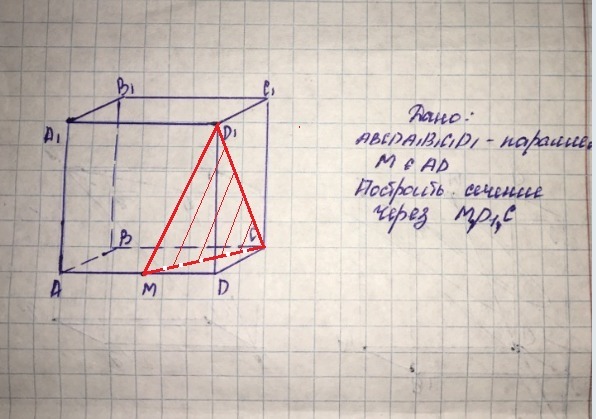 B₁ C₁
A₁ D₁
B C
A M D
Дано:
ABCDA₁B₁C₁D₁ - паралле
M ∈ AD
Построить сечение
через M,D₁,C